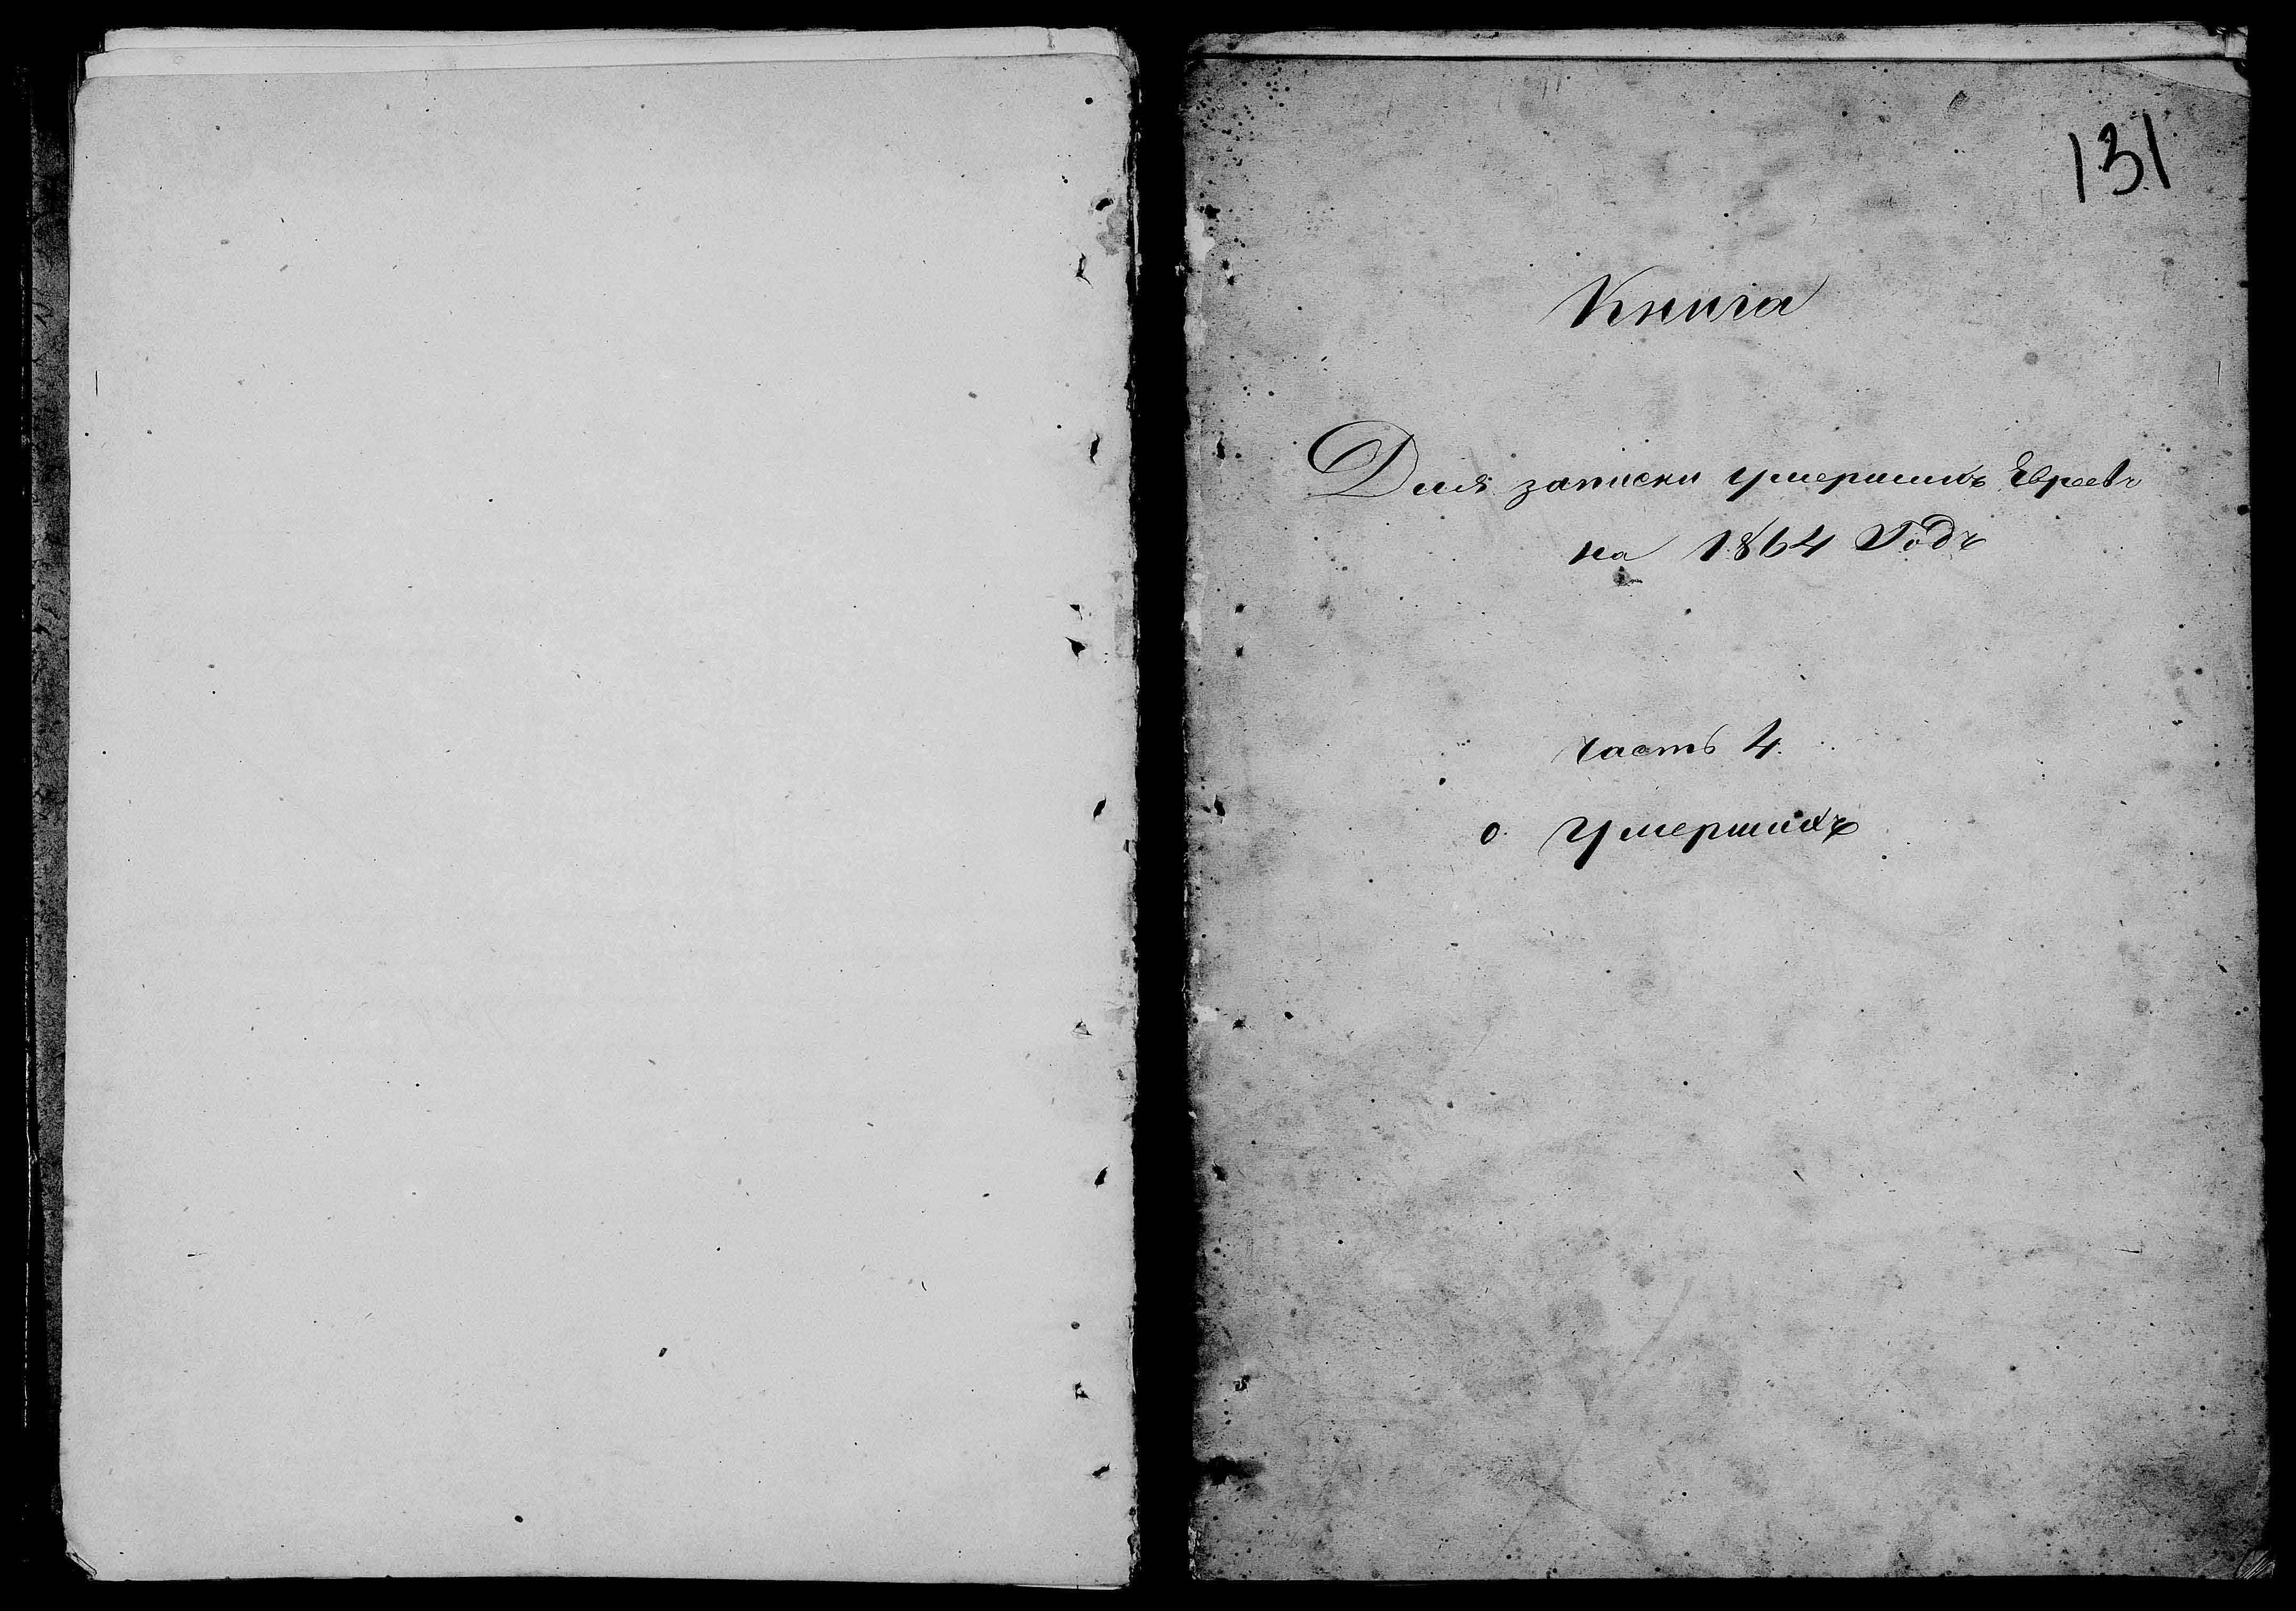 131
Книга
Для записки умершихъ Евреевъ
на 1864 Годъ
часть 4.
о умершихъ